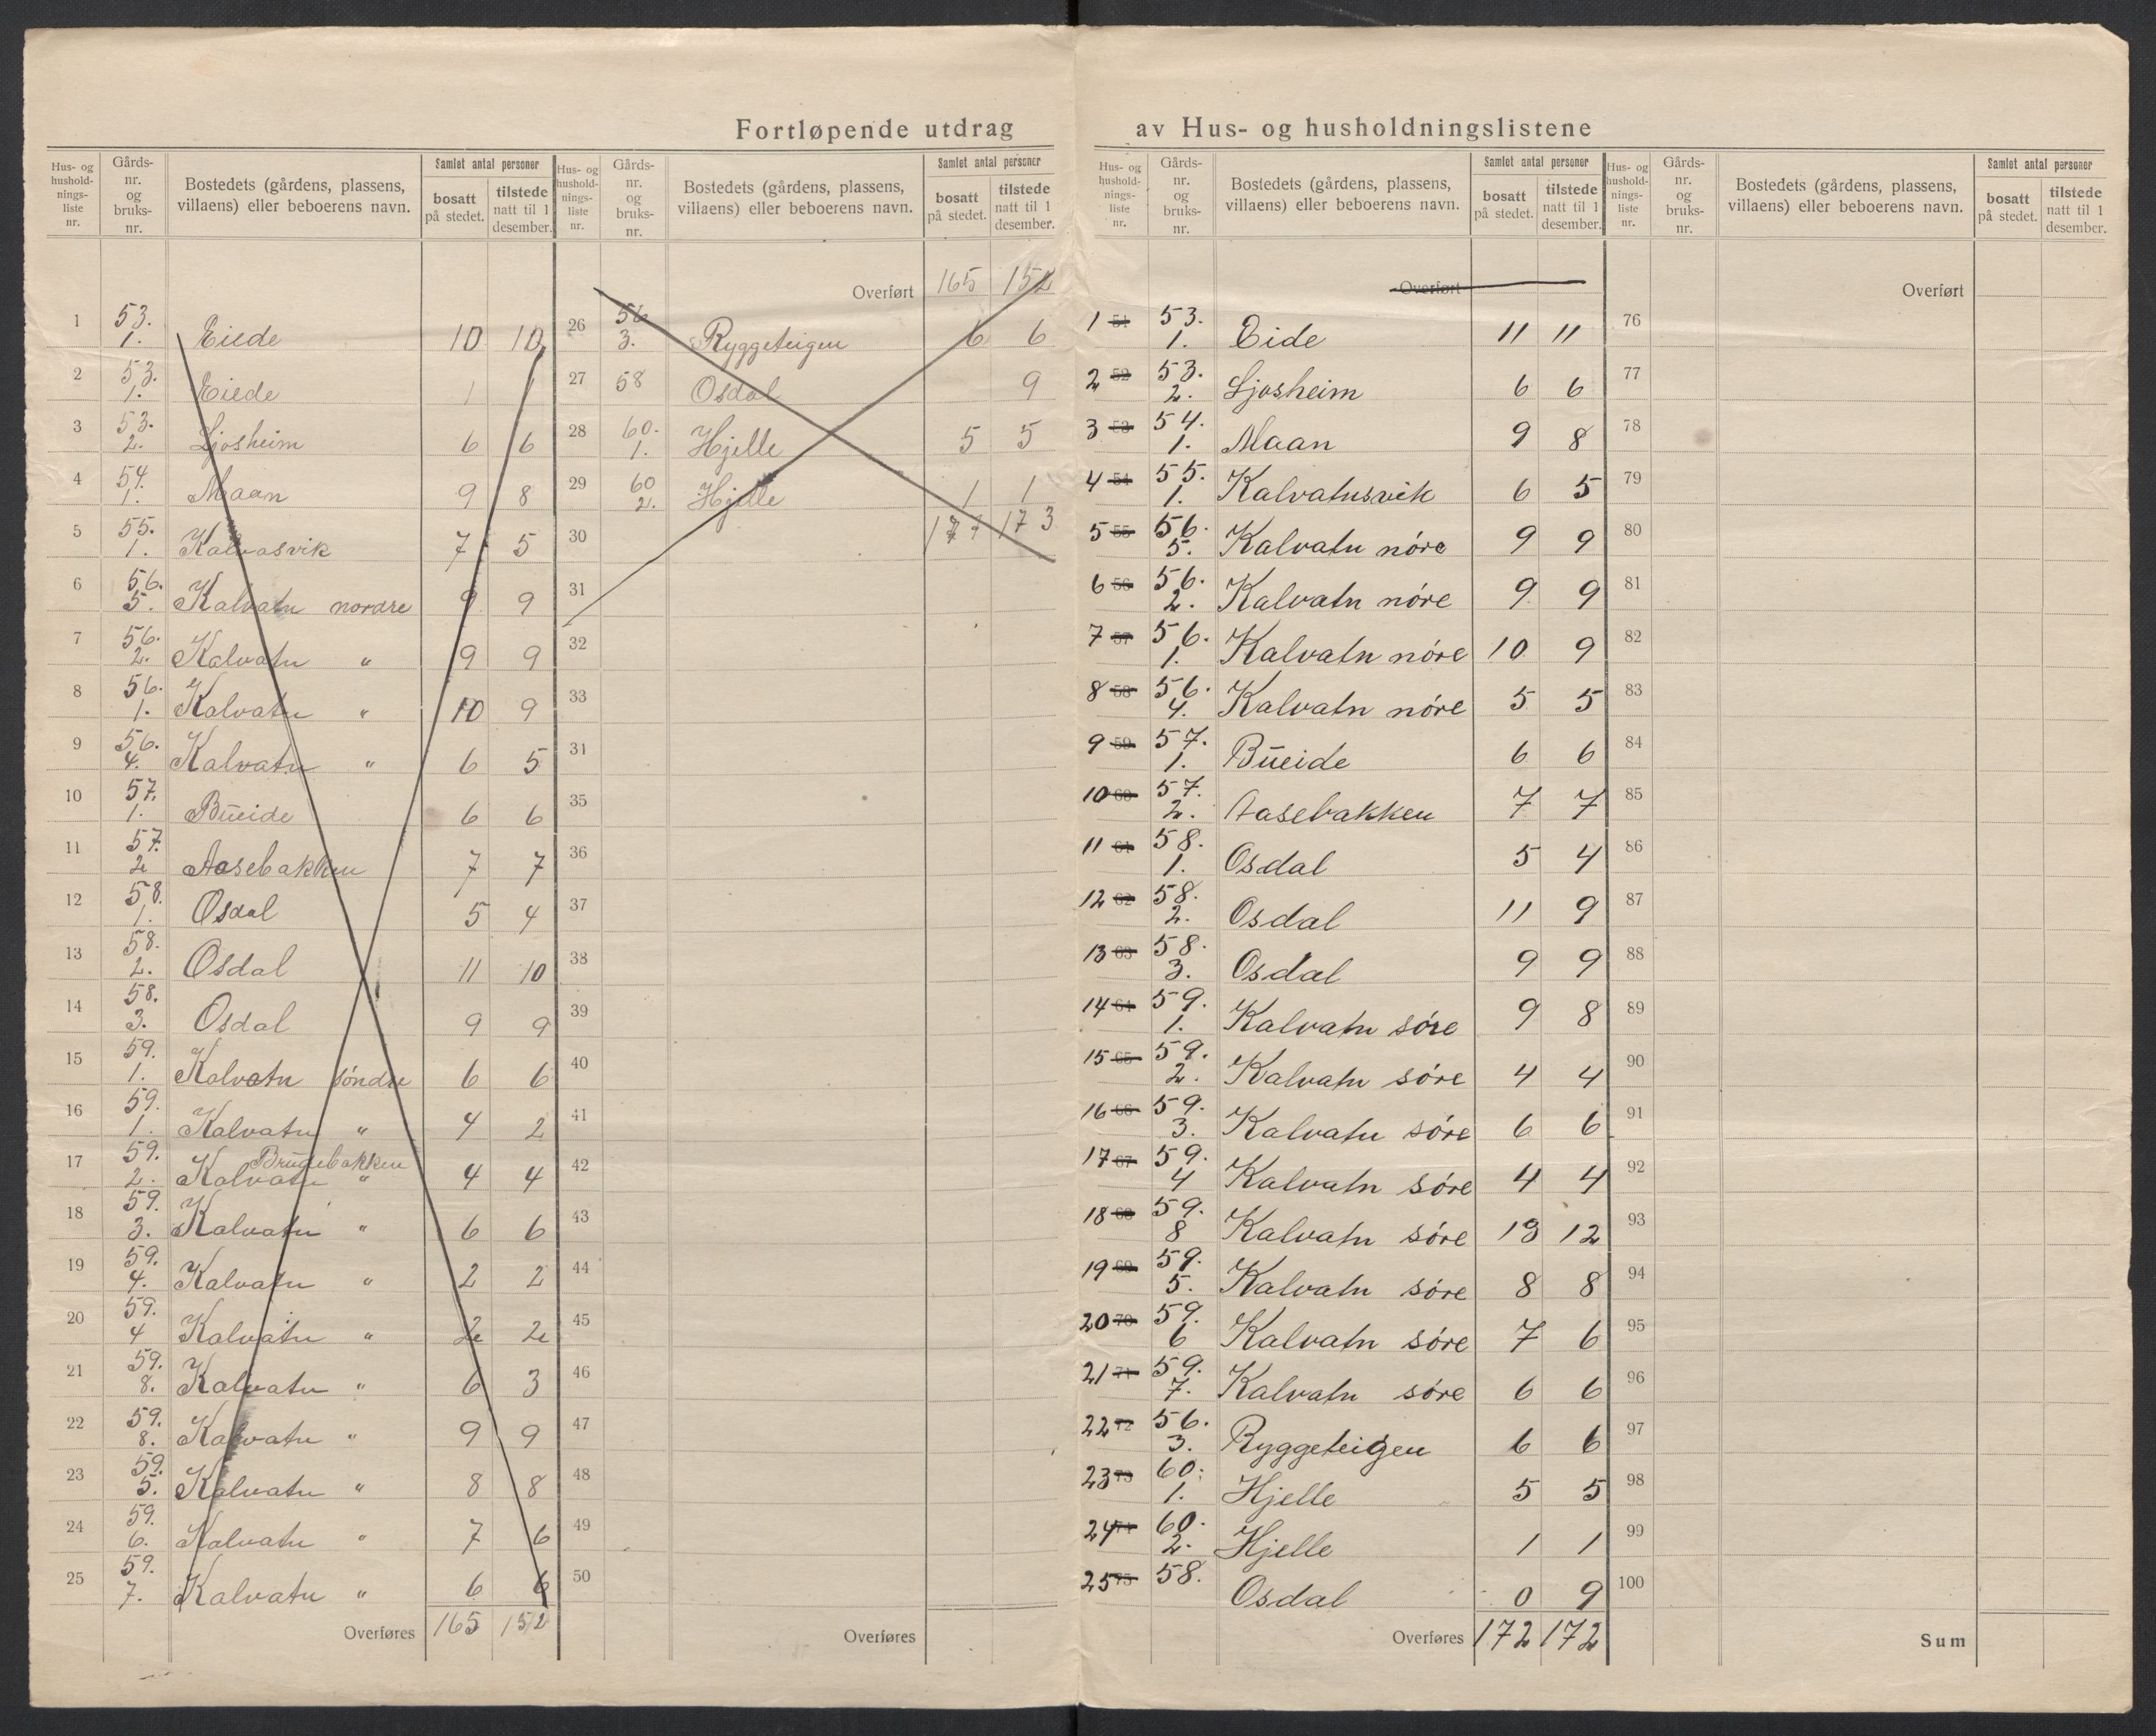 Fortløpende utdrag av Hus- og husholdningslistene
Hus- og hushold- nings- liste nr. | Gårds- nr. og bruks- nr. | Bostedets (gårdens, plassens, villaens) eller beboerens navn. | Samlet antal personer | bosatt på stedet. | tilstede natt til 1 desember.
1 53. 1. Eiede 10 10
2 53. 1. Eiede 1 1
3 53. 2. Ljosheim 6 6
4 54. 1. Maan 9 8
5 55. 1. Kalvasvik 7 5
6 56. 5. Kalvatn nordre 9 9
7 56. 2. Kalvatn " 9 9
8 56. 1. Kalvatn " 10 9
9 56. 4. Kalvatn " 6 5
10 57. 1. Bueide 6 6
11 57. 2 Aasebakken 7 7
12 58. 1. Osdal 5 4
13 58. 2. Osdal 11 10
14 58. 3. Osdal 9 9
15 59. 1. Kalvatn söndre 6 6
16 59. 1. Kalvatn " 4 2
Brugebakken
17 59. 2. Kalvatn " 4 4
18 59. 3. Kalvatn " 6 6
19 59. 4. Kalvatn " 2 2
20 59. 4 Kalvatn " 2 2
21 59. 8. Kalvatn " 6 3
22 59. 8. Kalvatn " 9 9
23 59. 5. Kalvatn " 8 8
24 59. 6. Kalvatn " 7 6
25 59. 7. Kalvatn " 6 6
Overføres 165 152
Hus- og hushold- nings- liste nr. | Gårds- nr. og bruks- nr. | Bostedets (gårdens, plassens, villaens) eller beboerens navn. | Samlet antal personer | bosatt på stedet. | tilstede natt til 1 desember.
Overført 165 152
26 56 3. Ryggeteigen 6 6
27 58 Osdal 9
28 60. 1. Hjelle 5 5
29 60 2. Hjelle 1 1
30 173
31
32
33
34
35
36
37
38
39
40
41
42
43
44
45
46
47
48
49
50
Overføres
Hus- og hushold- nings- liste nr. | Gårds- nr. og bruks- nr. | Bostedets (gårdens, plassens, villaens) eller beboerens navn. | Samlet antal personer | bosatt på stedet. | tilstede natt til 1 desember.
Overført
1 51 53. 1. Eide 11 11
2 52 53. 2. Ljosheim 6 6
3 53 54. 1. Maan 9 8
4 54 55. 1. Kalvatnsvik 6 5
5 55 56. 5. Kalvatn nöre 9 9
6 56 56. 2. Kalvatn nöre 9 9
7 57 56. 1. Kalvatn nöre 10 9
8 58 56. 4. Kalvatn nöre 5 5
9 59 57. 1. Bueide 6 6
10 60 57. 2. Aasebakken 7 7
11 61 58. 1. Osdal 5 4
12 62 58. 2. Osdal 11 9
13 63 58. 3. Osdal 9 9
14 64 59. 1. Kalvatn söre 9 8
15 65 59. 2. Kalvatn söre 4 4
16 66 59. 3. Kalvatn söre 6 6
17 67 59. 4 Kalvatn söre 4 4
18 68 59. 8 Kalvatn söre 13 12
19 69 59. 5. Kalvatn söre 8 8
20 70 59. 6 Kalvatn söre 7 6
21 71 59. 7. Kalvatn söre 6 6
22 72 56. 3. Ryggeteigen 6 6
23 73 60. 1. Hjelle 5 5
24 74 60. 2. Hjelle 1 1
25 75 58. Osdal 0 9
Overføres 172 172
Hus- og hushold- nings- liste nr. | Gårds- nr. og bruks- nr. | Bostedets (gårdens, plassens, villaens) eller beboerens navn. | Samlet antal personer | bosatt på stedet. | tilstede natt til 1 desember.
Overført
76
77
78
79
80
81
82
83
84
85
86
87
88
89
90
91
92
93
94
95
96
97
98
99
100
Sum